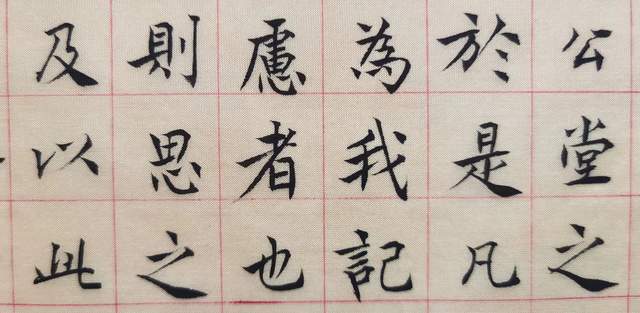 公堂之
於是凡
為我記
慮者也
則思之
及以此